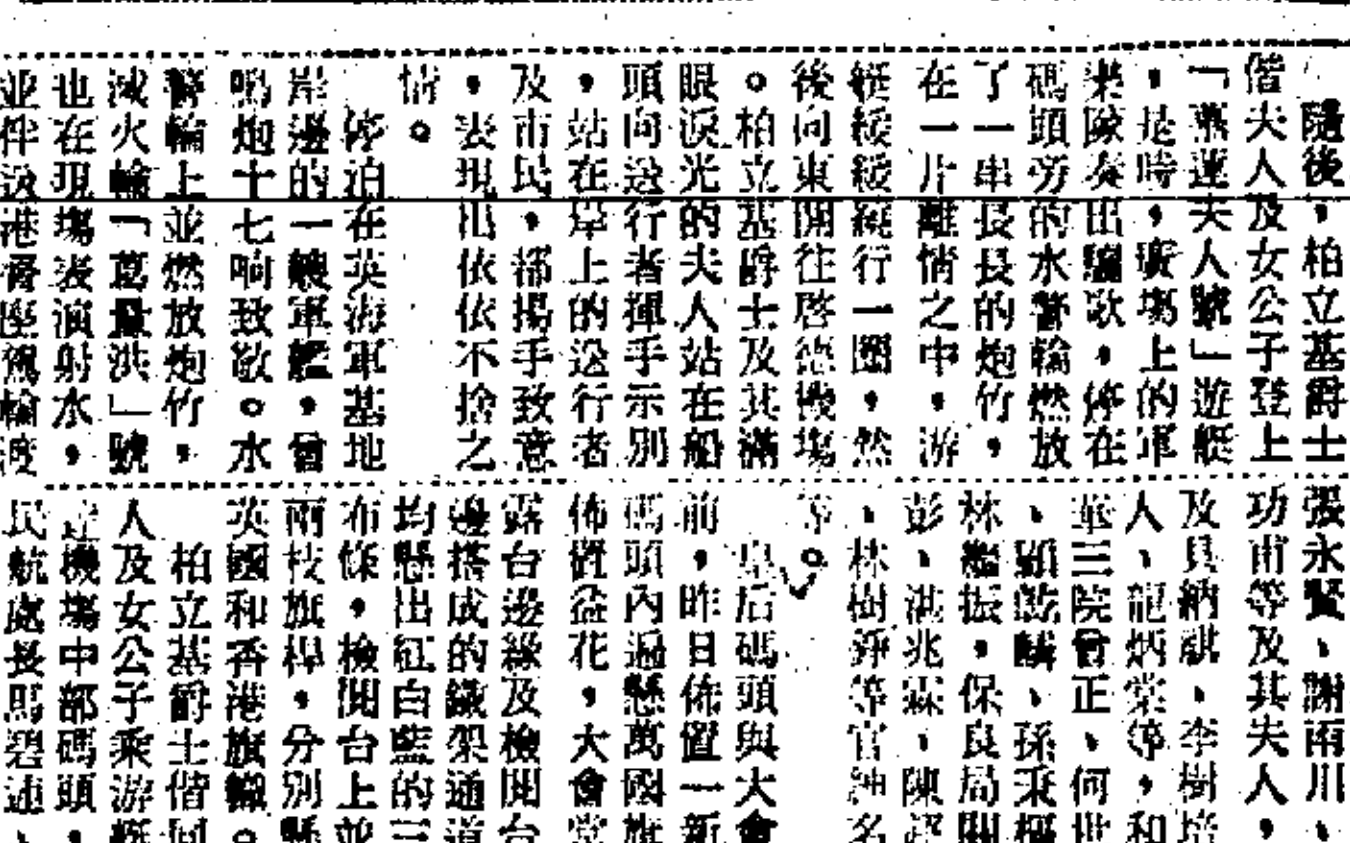 隨後，柏立基爵士
偕夫人及女公子登上
「慕蓮夫人號」遊艇
，是時，廣塲上的軍
樂隊奏出驪歌，停在
碼頭旁的水警輪燃放
了一串長長的炮竹，
在一片離情之中，游
艇緩緩繞行一圈，然
後向東開往啓德機塲
。柏立基爵士及其滿
眼淚光的夫人站在船
頭向送行者揮手示別
，站在岸上的送行者
及市民，揚手致意
，表現出依依不捨之
情。
停泊在英海軍基地
岸邊的一艘軍艦，曾
鳴炮十七响致敬。水
警輪上並燃放炮竹，
滅火輪「葛量洪」號
也在現塲表演射水，
並伴送港督座駕輪渡
張永賢、謝雨川、
功甫等及其夫人，
及貝納祺、李樹培
人、龍炳棠等，和
華三院曾正、何世
、顏乾麟、孫秉樞
林鑑振，保良局關
彭、洪兆霖、陳
、林樹錚等官紳名
等。
皇后碼頭與大會
前，昨日佈置一新
碼頭內遍懸萬國旗
佈置盆花，大會堂
露台邊緣及檢閱台
邊搭成的鐵架通道
均懸出紅白藍的三
布條，檢閱台上並
兩枝旗桿，分別懸
英國和香港旗幟。
柏立基爵士偕同
人及女公子乘游艇
達機塲中部碼頭，
民航處長馬碧速、